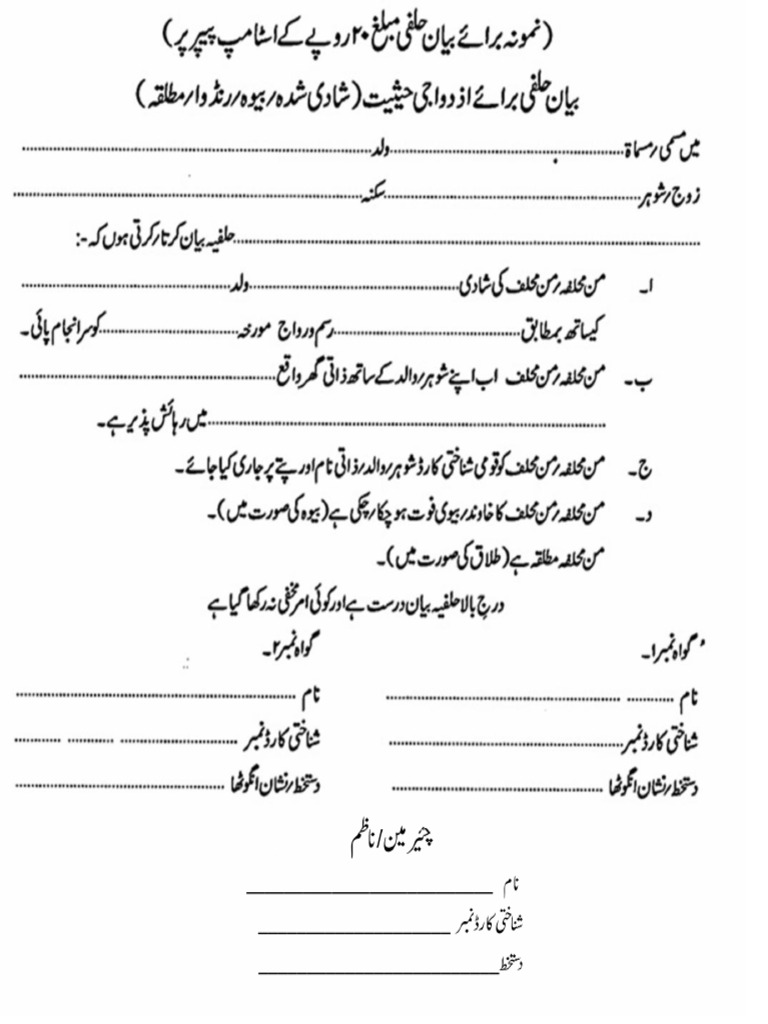 (نمونہ برائے بیان حلفی مبلغ ۲۰ روپے کے اسٹامپ پیپر پر)
بیان حلفی برائے ازدواجی حیثیت (شادی شدہ/بیوہ/رنڈوا/مطلقہ)
میں مسمی/مسماۃ............................ولد............................
زوج/شوہر............................سکنہ............................
............................حلفیہ بیان کرتا/کرتی ہوں کہ -:
ا۔ من محلفہ/من محلف کی شادی............................ولد............................
کیساتھ بمطابق............................رسم و رواج مورخہ............................کو سرانجام پائی۔
ب۔ من محلفہ/من محلف اب اپنے شوہر/والد کے ساتھ ذاتی گھر واقع............................
............................میں رہائش پذیر ہے۔
ج۔ من محلفہ/من محلف کو قومی شناختی کارڈ شوہر/والد/ذاتی نام اور پتے پر جاری کیا جائے۔
د۔ من محلفہ/من محلف کا خاوند/بیوی فوت ہو چکا/چکی ہے (بیوہ کی صورت میں)۔
من محلفہ مطلقہ ہے (طلاق کی صورت میں)۔
درج بالا حلفیہ بیان درست ہے اور کوئی امر مخفی نہ رکھا گیا ہے
گواہ نمبر ۱۔ گواہ نمبر ۲۔
نام ............................ نام ............................
شناختی کارڈ نمبر............................ شناختی کارڈ نمبر ............................
دستخط/نشان انگوٹھا ............................ دستخط/نشان انگوٹھا ............................
چئیر مین/ناظم
نام ____________________
شناختی کارڈ نمبر ____________________
دستخط____________________